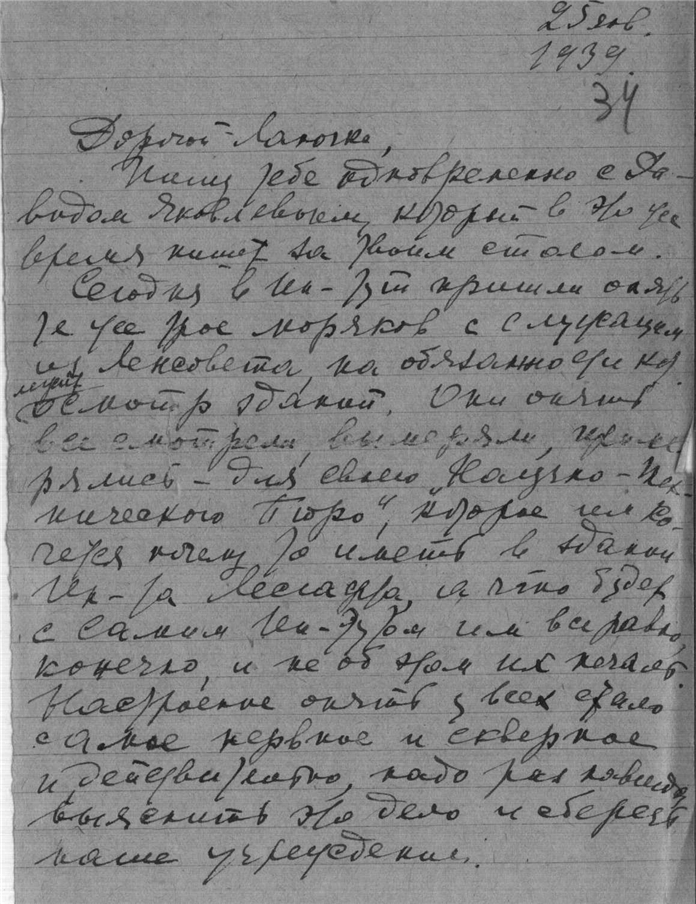 25 янв.
1939.
34
Дорогой Ляночке,
Пишу тебе одновременно с Да-
видом Яковлевичем, который в это же
время пишет за твоим столом.
Сегодня в Ин-тут пришли опять
те же трое моряков с служащим
из Ленсовета, на обязанности кот.
лежит
осмотр зданий. Они опять
все смотрели, вымеряли, приме
рялись – для своего „Научно-Тех-
нического Бюро", которое им хо-
чется почему то иметь в здании
Ин-та Лесгафта, а что будет
с самим Ин-тутом им все равно,
конечно, и не об этом их печаль.
Настроение опять у всех стало
самое нервное и скверное
и действительно, надо раз навсегда
выяснить это дело и сберечь
наше учреждение.